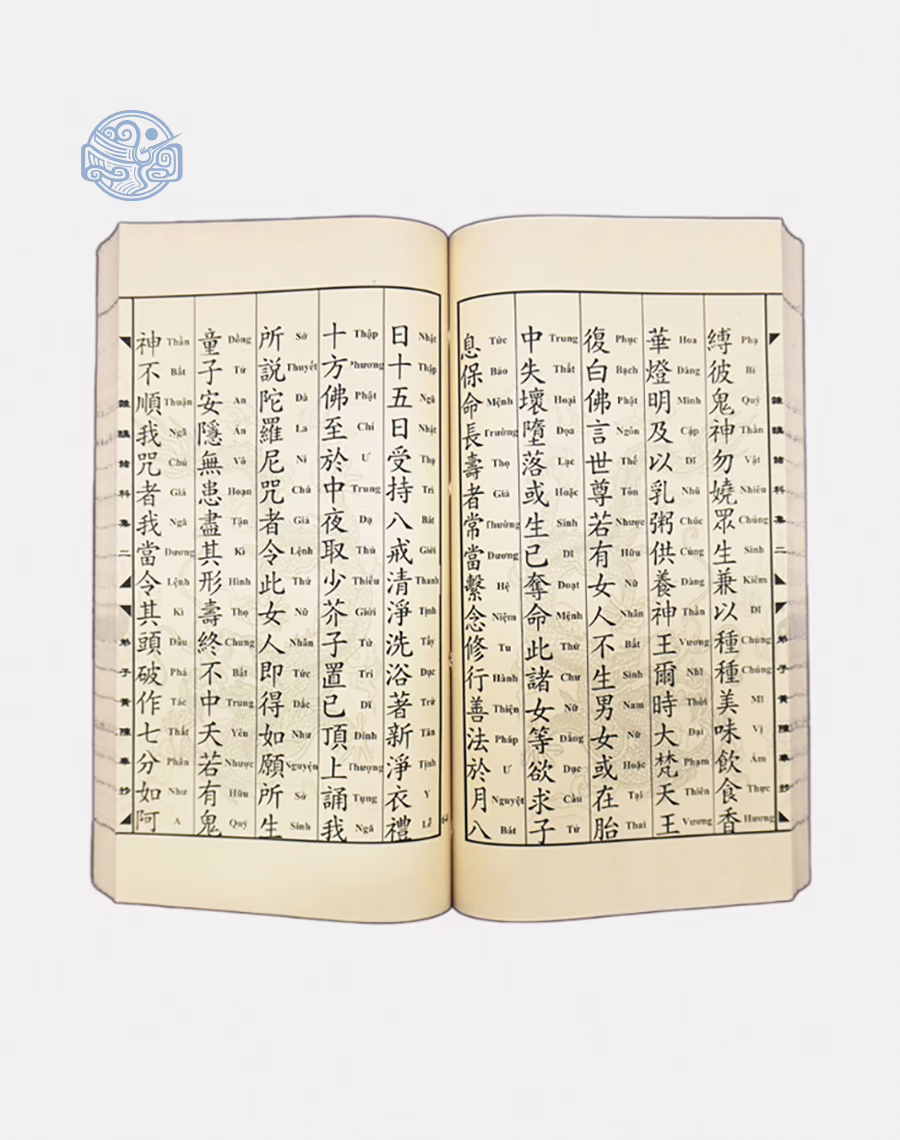 諸科集二
弟子黃陳奉抄
縛彼鬼神勿嬈眾生兼以種種美味飲食香
Phạ Bỉ Quỷ Thần Vật Nhiêu Chúng Sinh Kiêm Dĩ Chủng Chủng Mĩ Vị Ẩm Thực Hương
華燈明及以乳粥供養神王爾時大梵天王
Hoa Đăng Minh Cập Dĩ Nhũ Chúc Cúng Dàng Thần Vương Nhĩ Thời Đại Phạm Thiên Vương
復白佛言世尊若有女人不生男女或在胎
Phục Bạch Phật Ngôn Thế Tôn Nhược Hữu Nữ Nhân Bất Sinh Nam Nữ Hoặc Tại Thai
中失壞墮落或生已奪命此諸女等欲求子
Trung Thất Hoại Đọa Lạc Hoặc Sinh Dĩ Đoạt Mệnh Thử Chư Nữ Đẳng Dục Cầu Tử
息保命長壽者常當繫念修行善法於月八
Tức Bảo Mệnh Trường Thọ Giả Thường Đương Hệ Niệm Tu Hành Thiện Pháp Ư Nguyệt Bát
日十五日受持八戒清淨洗浴著新淨衣禮
Nhật Thập Ngũ Nhật Thụ Trì Bát Giới Thanh Tịnh Tẩy Dục Trứ Tân Tịnh Y Lễ
十方佛至於中夜取少芥子置已頂上誦我
Thập Phương Phật Chí Ư Trung Dạ Thủ Thiểu Giới Tử Trí Dĩ Đỉnh Thượng Tụng Ngã
所說陀羅尼咒者令此女人即得如願所生
Sở Thuyết Đà La Ni Chú Giả Lệnh Thử Nữ Nhân Tức Đắc Như Nguyện Sở Sinh
童子安隱無患盡其形壽終不中夭若有鬼
Đồng Tử An Ẩn Vô Hoạn Tận Kì Hình Thọ Chung Bất Trung Yêu Nhược Hữu Quỷ
神不順我咒者我當令其頭破作七分如阿
Thần Bất Thuận Ngã Chú Giả Ngã Đương Lệnh Kì Đầu Phá Tác Thất Phân Như A
諸科集二
弟子黃陳奉抄